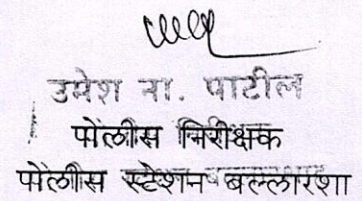 उमेश ना. पाटील
पोलीस निरीक्षक
पोलीस स्टेशन बल्लारशा